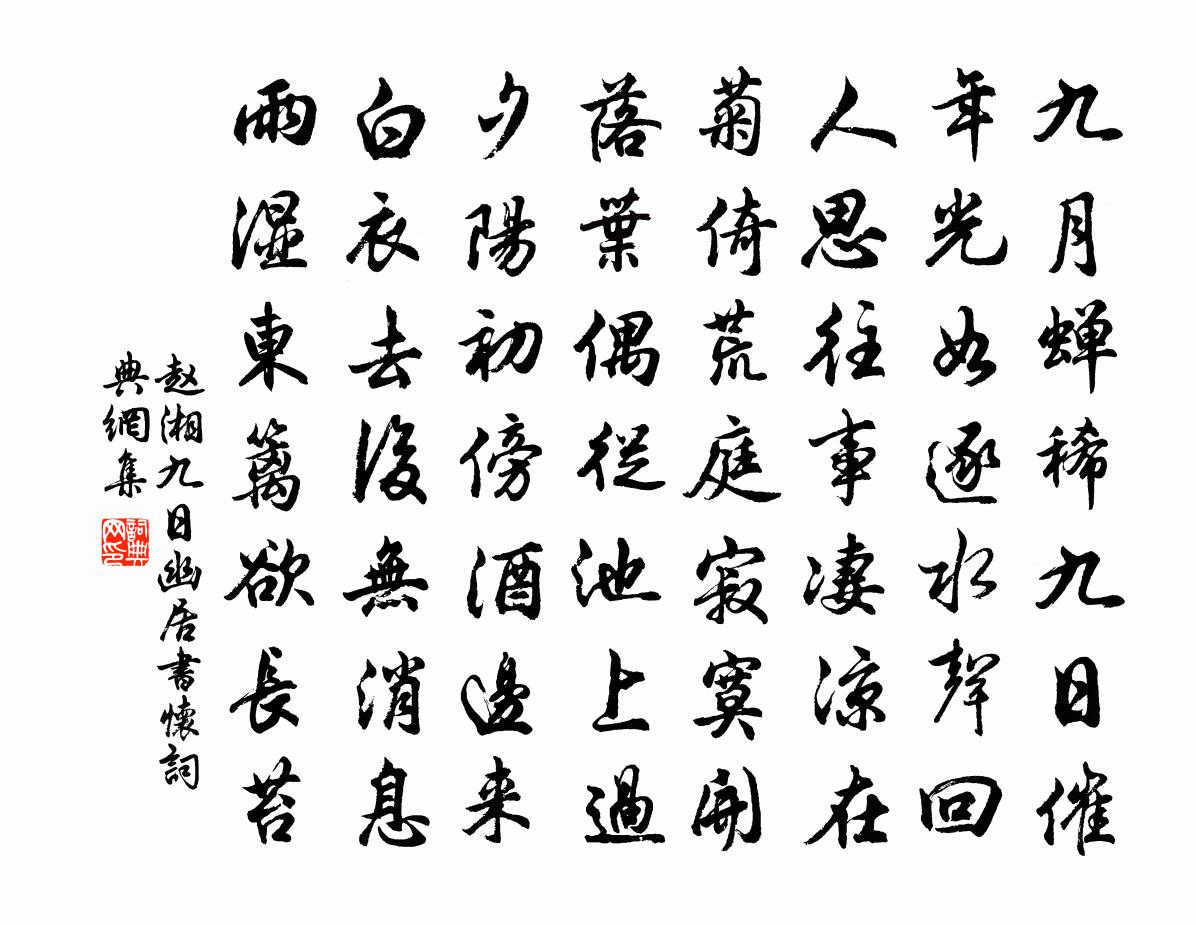 九月蝉稀九日催
年光如逐水聲回
人思往事凄涼在
菊倚荒庭寂寞開
落葉偶從池上過
夕陽初傍酒邊来
白衣去後無消息
雨濕東籬欲長苔
赵湘九日幽居書懷詞
典網集
詞典
网印